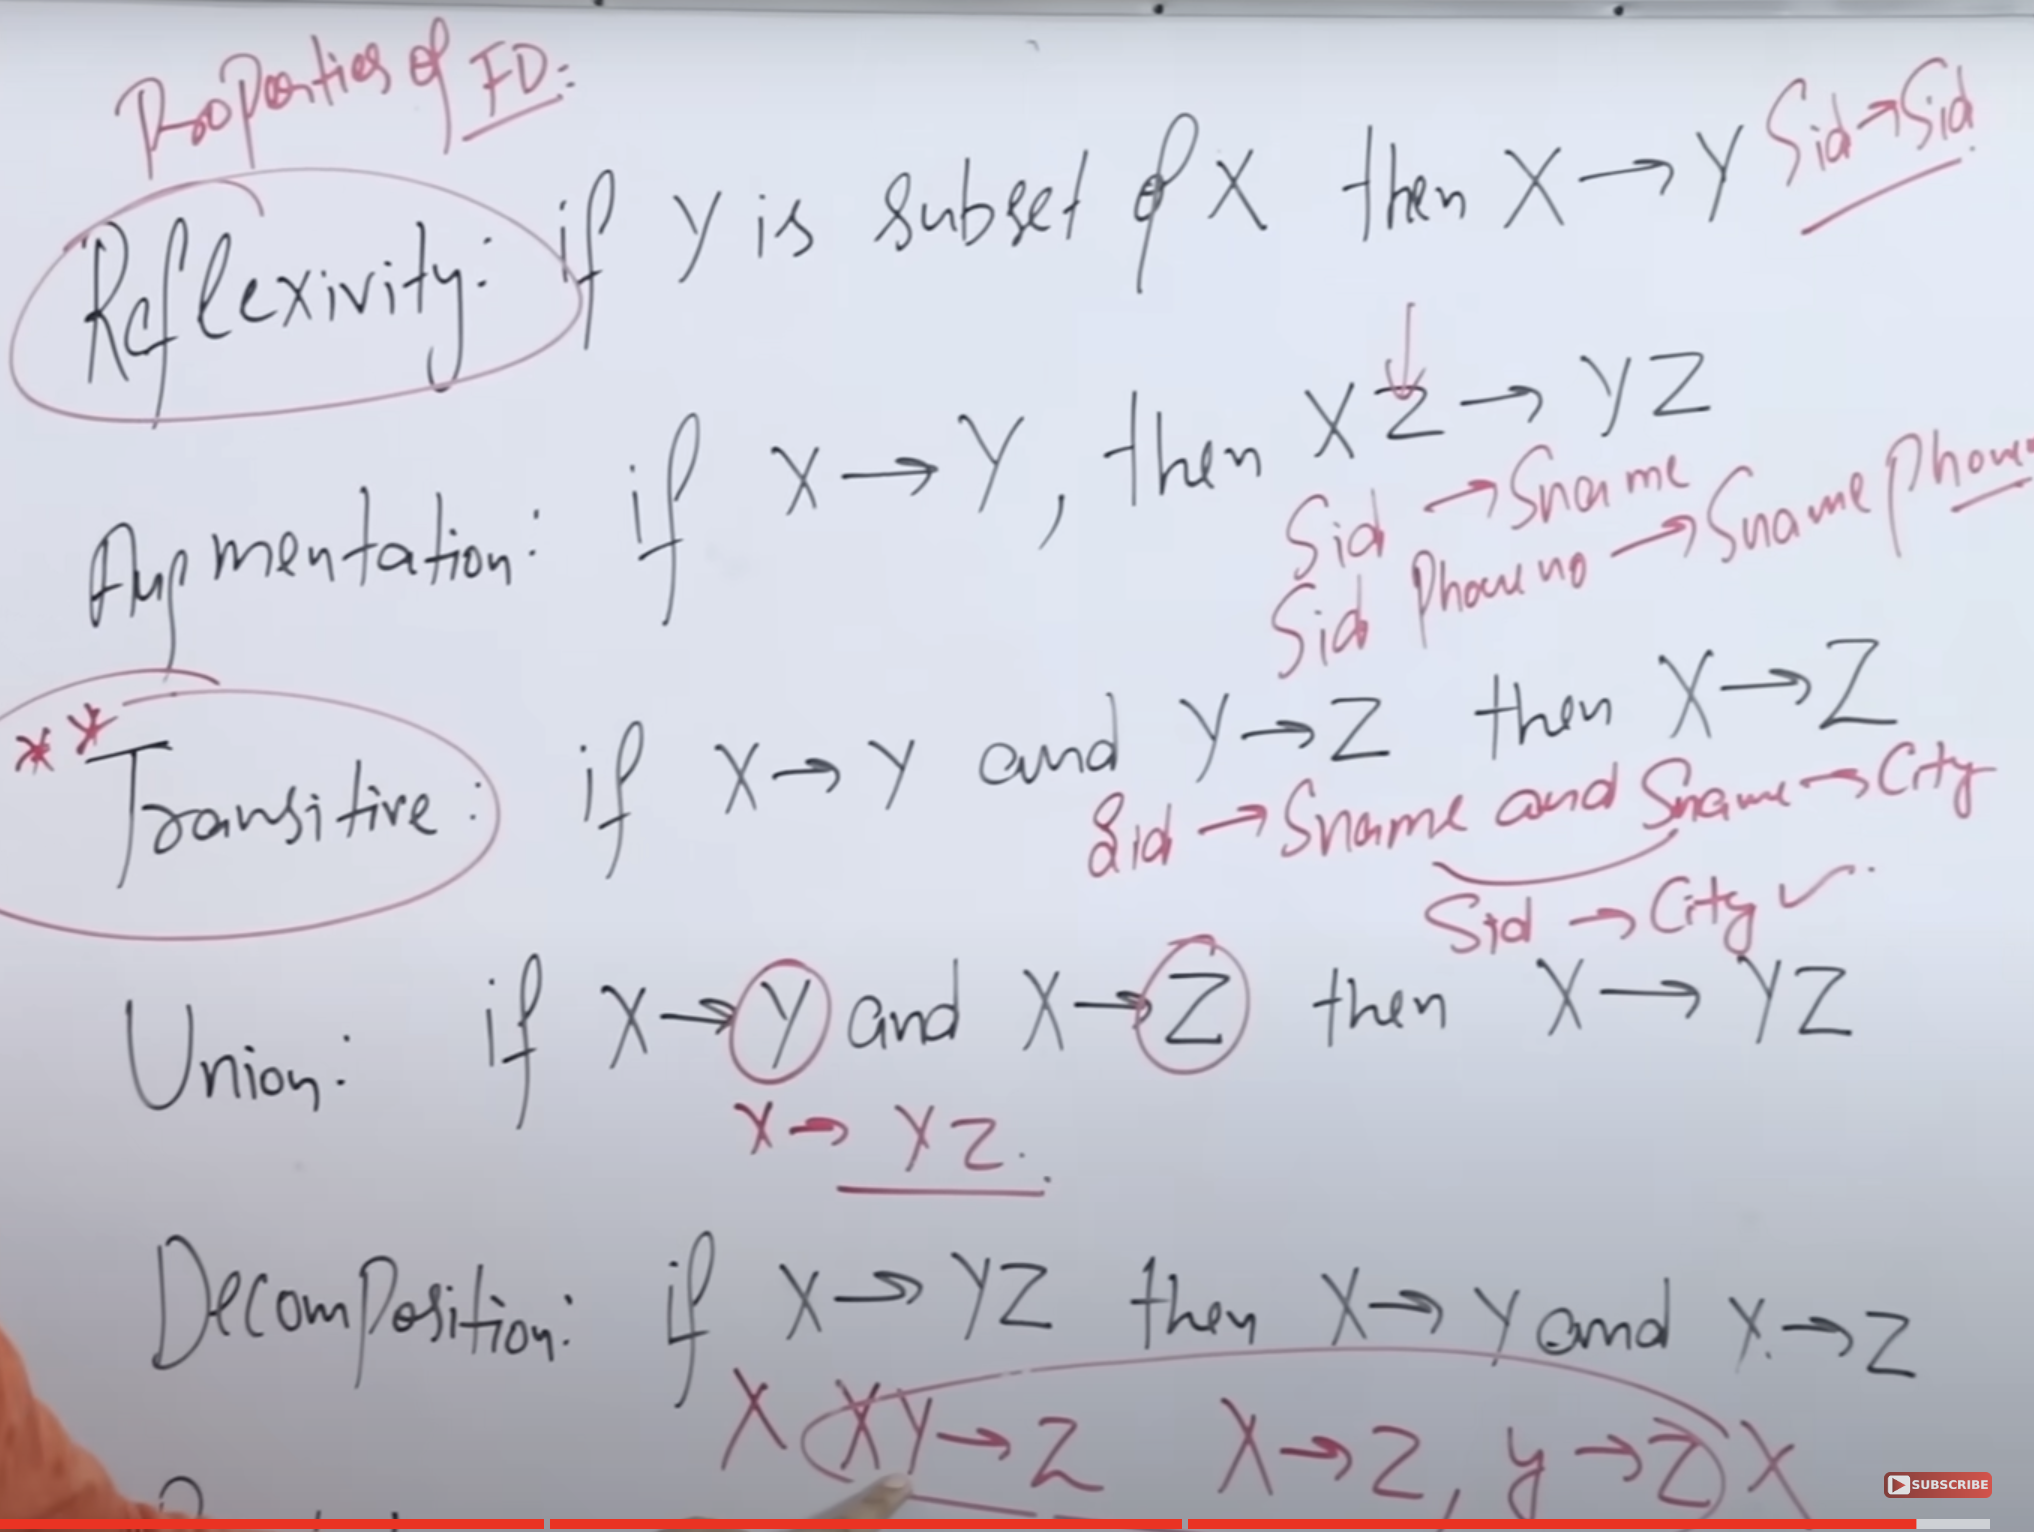 Properties of FD:-
Reflexivity: if Y is subset of X then X → Y Sid → Sid
Augmentation: if X → Y, then XZ → YZ
Sid → Sname
Sid Phone no → Sname Phone
** Transitive: if X → Y and Y → Z then X → Z
Sid → Sname and Sname → City
Sid → City ✓
Union: if X → Y and X → Z then X → YZ
X → YZ
Decomposition: if X → YZ then X → Y and X → Z
X XY → Z X → Z, y → Z X
SUBSCRIBE